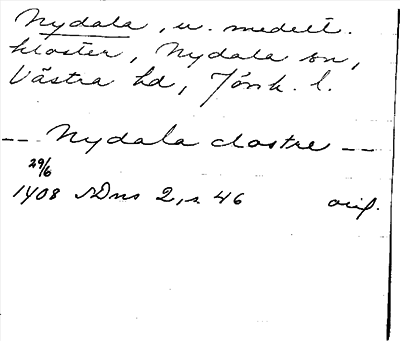 Nydala, u. medelt.
kloster, Nydala sn,
Västra hd, Jönk. l.
-- Nydala clostre --
29/6
1408 SDns 2, s 46 orig.